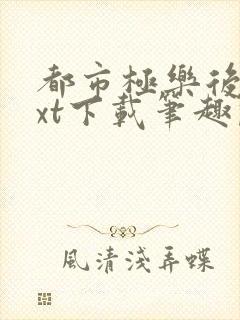 都市極樂後
xt下載筆趣
風清淺弄蝶